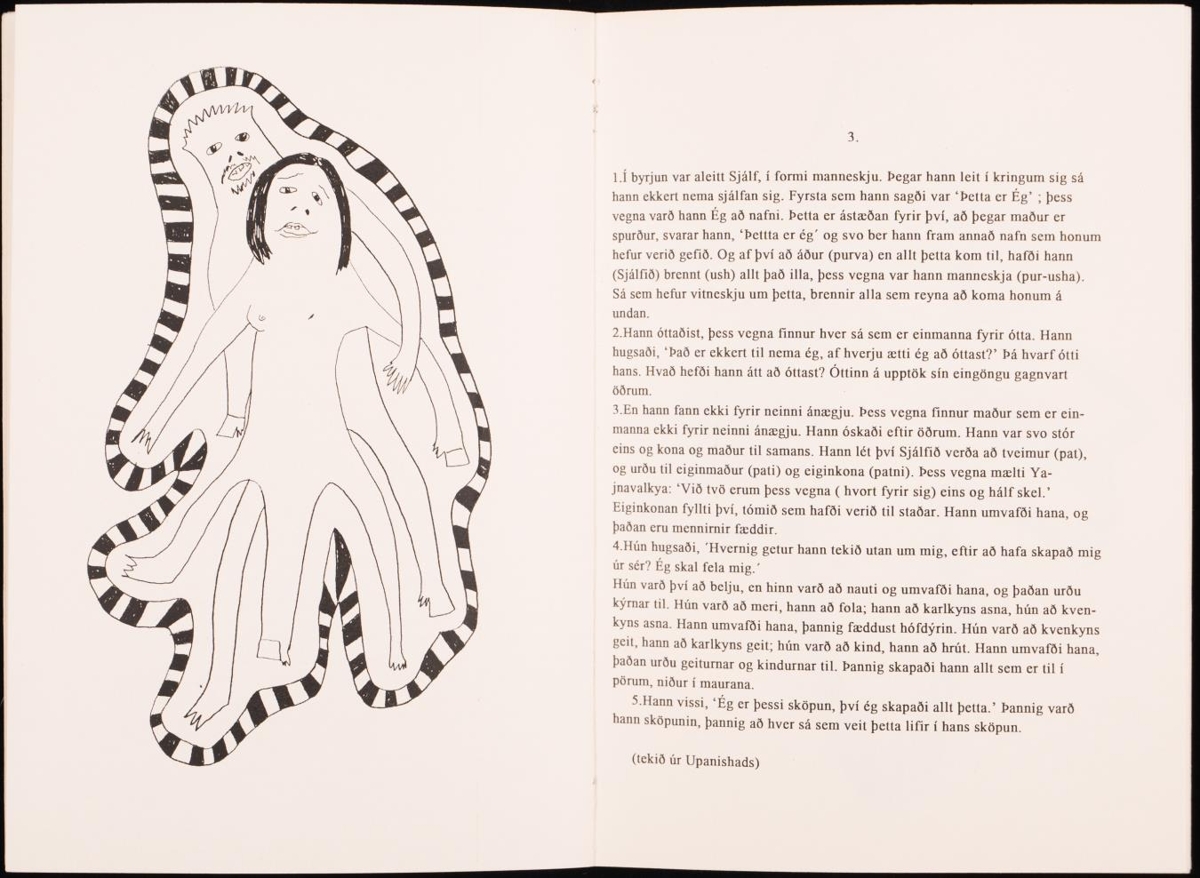 3.
1.Í byrjun var aleitt Sjálf, í formi manneskju. Þegar hann leit í kringum sig sá
hann ekkert nema sjálfan sig. Fyrsta sem hann sagði var ‘Þetta er Ég’ ; þess
vegna varð hann Ég að nafni. Þetta er ástæðan fyrir því, að þegar maður er
spurður, svarar hann, ‘Þettta er ég´ og svo ber hann fram annað nafn sem honum
hefur verið gefið. Og af því að áður (purva) en allt þetta kom til, hafði hann
(Sjálfið) brennt (ush) allt það illa, þess vegna var hann manneskja (pur-usha).
Sá sem hefur vitneskju um þetta, brennir alla sem reyna að koma honum á
undan.
2.Hann óttaðist, þess vegna finnur hver sá sem er einmanna fyrir ótta. Hann
hugsaði, ‘Það er ekkert til nema ég, af hverju ætti ég að óttast?’ Þá hvarf ótti
hans. Hvað hefði hann átt að óttast? Óttinn á upptök sín eingöngu gagnvart
öðrum.
3.En hann fann ekki fyrir neinni ánægju. Þess vegna finnur maður sem er ein-
manna ekki fyrir neinni ánægju. Hann óskaði eftir öðrum. Hann var svo stór
eins og kona og maður til samans. Hann lét því Sjálfið verða að tveimur (pat),
og urðu til eiginmaður (pati) og eiginkona (patni). Þess vegna mælti Ya-
jnavalkya: ‘Við tvö erum þess vegna ( hvort fyrir sig) eins og hálf skel.’
Eiginkonan fyllti því, tómið sem hafði verið til staðar. Hann umvafði hana, og
þaðan eru mennirnir fæddir.
4.Hún hugsaði, ´Hvernig getur hann tekið utan um mig, eftir að hafa skapað mig
úr sér? Ég skal fela mig.´
Hún varð því að belju, en hinn varð að nauti og umvafði hana, og þaðan urðu
kýrnar til. Hún varð að meri, hann að fola; hann að karlkyns asna, hún að kven-
kyns asna. Hann umvafði hana, þannig fæddust hófdýrin. Hún varð að kvenkyns
geit, hann að karlkyns geit; hún varð að kind, hann að hrút. Hann umvafði hana,
þaðan urðu geiturnar og kindurnar til. Þannig skapaði hann allt sem er til í
pörum, niður í maurana.
5.Hann vissi, ‘Ég er þessi sköpun, því ég skapaði allt þetta.’ Þannig varð
hann sköpunin, þannig að hver sá sem veit þetta lifir í hans sköpun.
(tekið úr Upanishads)